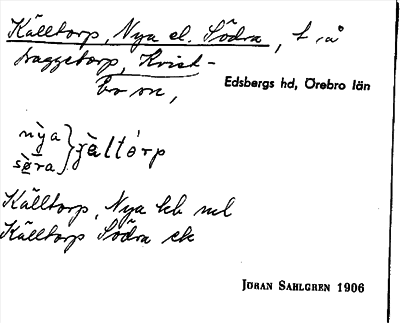 Källtorp, Nya el. Södra, t. å
Draggetorp, Kvist-
bro sn,
Edsbergs hd, Örebro län
nỳa
sø̀ra } jæ̀ltórp
Källtorp, Nya kb ml
Källtorp Södra ek
JÖRAN SAHLGREN 1906